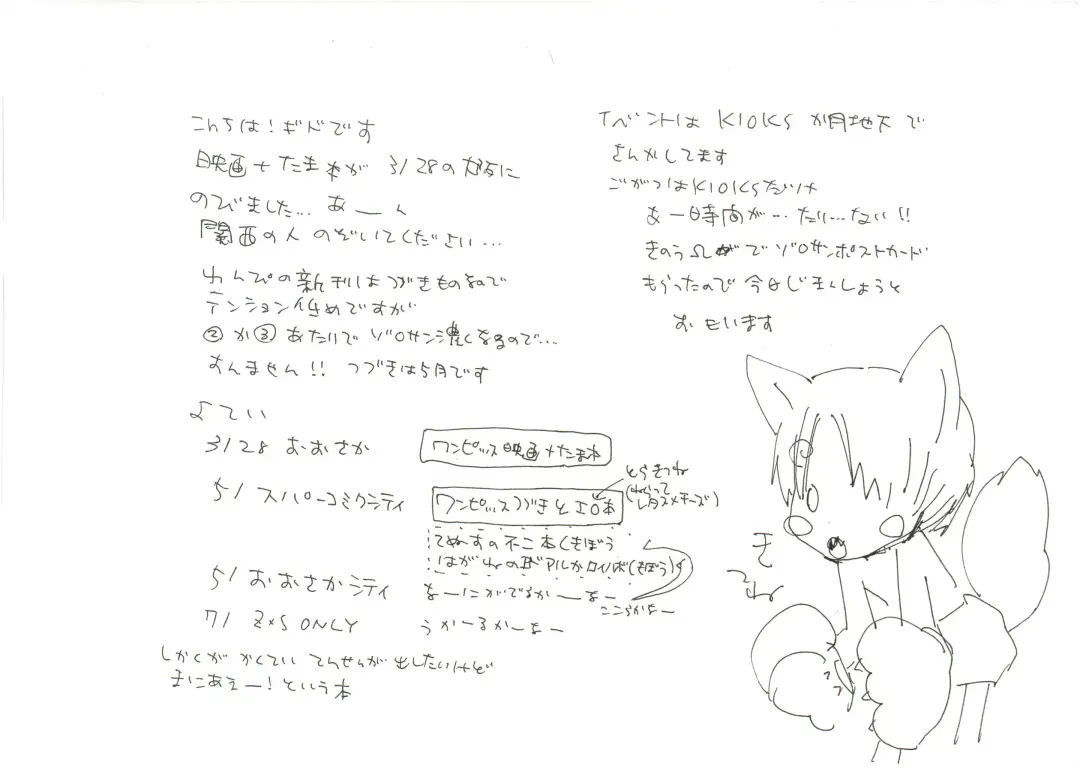 こんちは！ギドです
映画+たま本が 3/28の大阪に
のびました… あーん
関西の人 のぞいてください…
わんぴの新刊はつづきものなので
テンション低めですが
②か③あたりで ゾロサン濃くなるので…
すんません!! つづきは5月です
よてい
3/28 おおさか
ワンピッス映画+たま本
5/ スパーコミクシティ
ワンピッスつづきとエロ本
とらきつね
(ねらって
レタスメチーズ)
てぬすの不二本(きぼう
はがれの アルかロイ本(きぼう)
5/ おおさかシティ
なーにがでるかーなー
ここらかなー
7/ Z×S ONLY
うかーるかーなー
しかくが かくてい てんせんが 出したいけど
まにあえー！という本
イベントは KIOKS が月地下で
さんかしてます
ごがつはKIOKSだけ
あー時間が…たり…ない!!
きのうΩ でゾロサンポストカード
もらったので 今日じまんしようと
おもいます
きつね